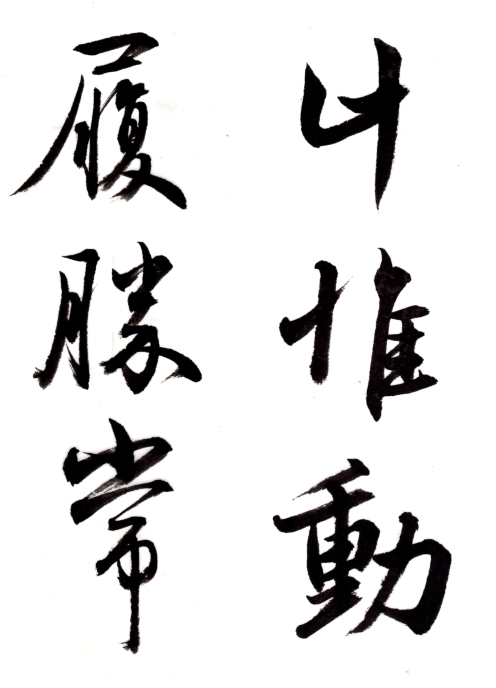 比惟動
履勝常